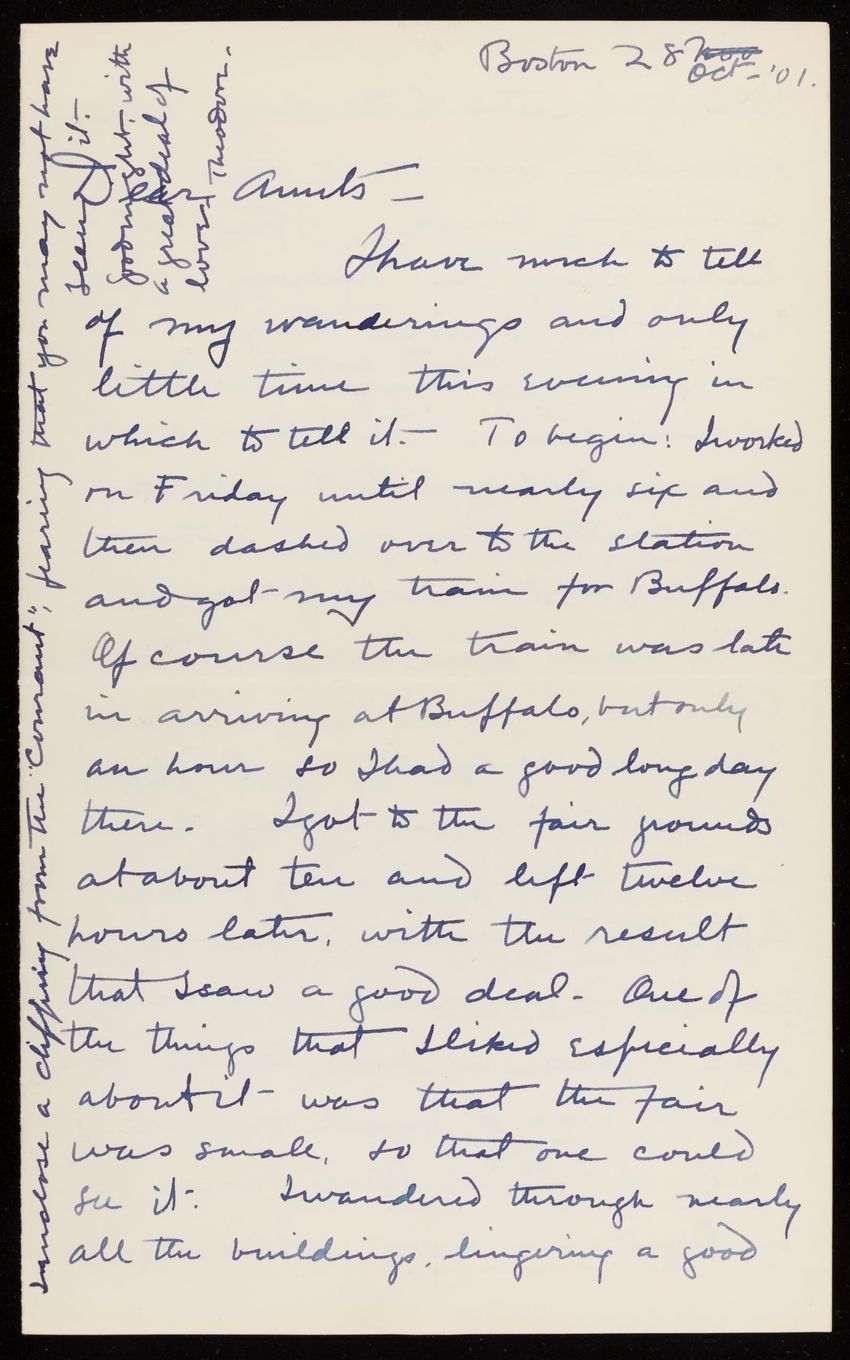 Boston 28 Nov
Oct - '01.
Dear Aunts —
I have much to tell
of my wanderings and only
little time this evening in
which to tell it. — To begin: I worked
on Friday until nearly six and
then dashed over to the station
and got my train for Buffalo.
Of course the train was late
in arriving at Buffalo, but only
an hour so I had a good long day
there. I got to the fair grounds
at about ten and left twelve
hours later, with the result
that I saw a good deal - One of
the things that I liked especially
about it was that the fair
was small, so that one could
see it. I wandered through nearly
all the buildings, lingering a good
I enclose a clipping from the "Courant", fearing that you may not have
seen it. —
Goodnight, with
a great deal of
love. Theodore.